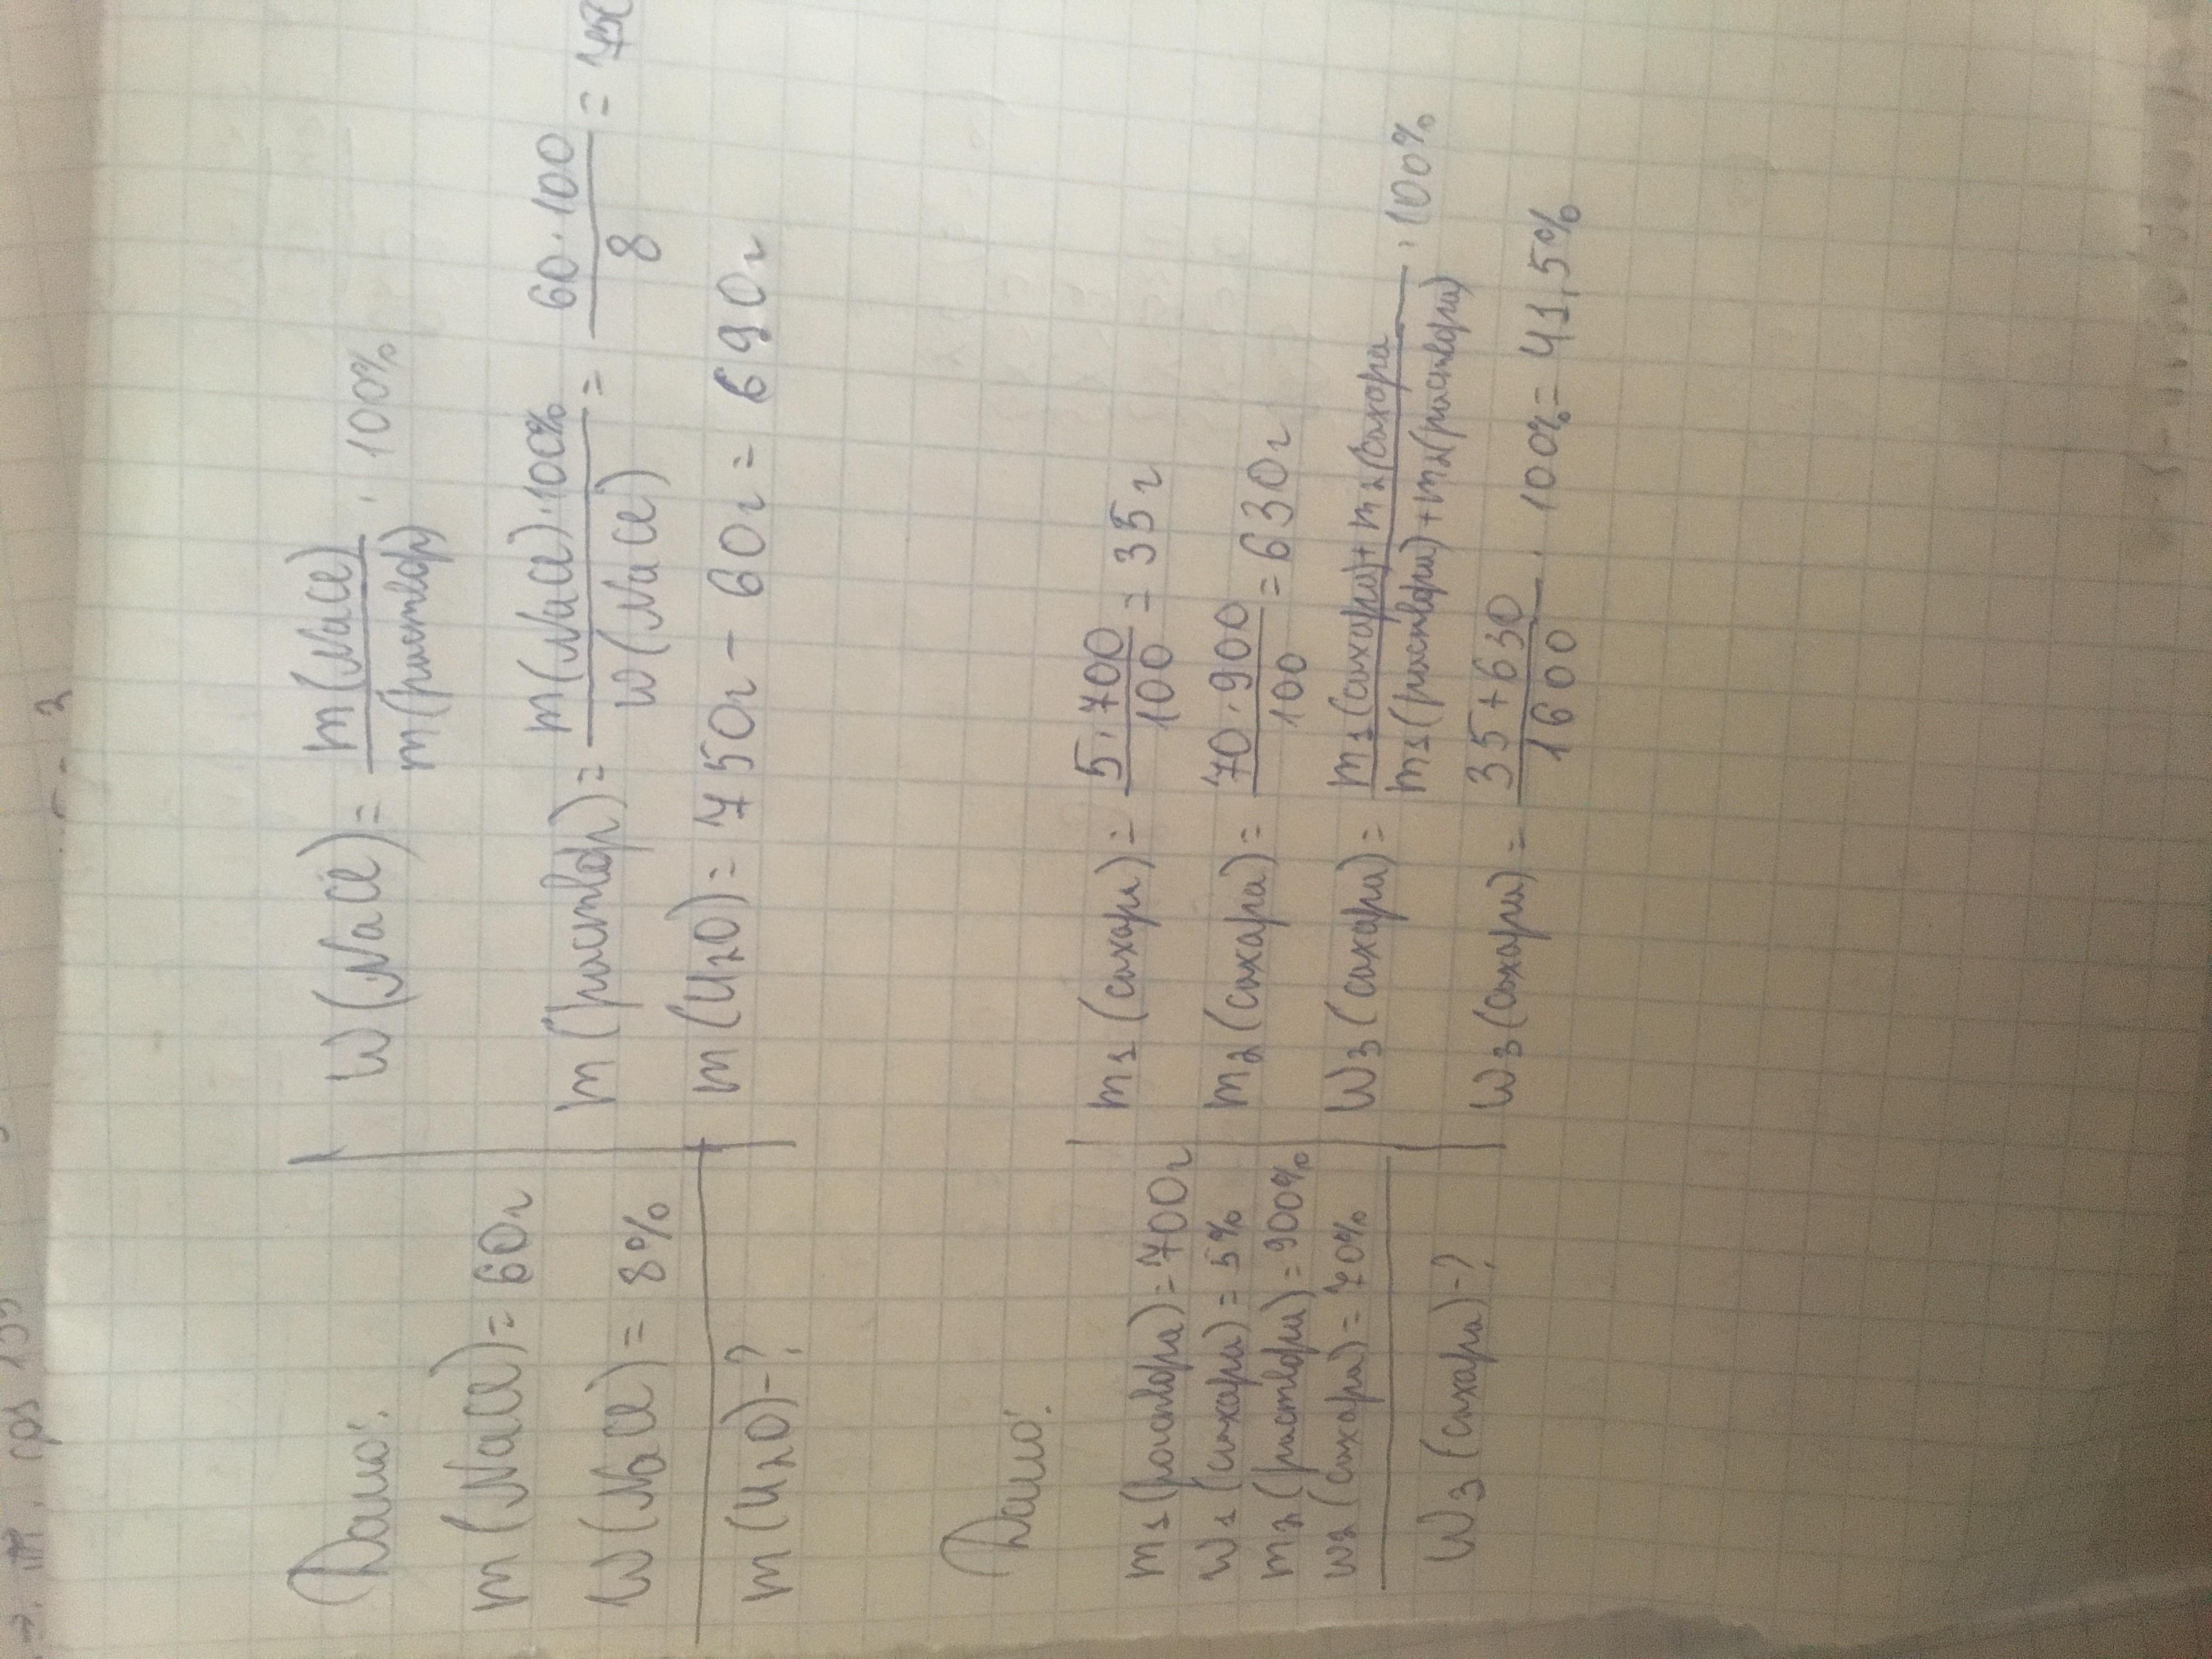 Дано:
m(NaCl)=60г
W(NaCl)=8%
m(H₂O)-?
W(NaCl)= m(NaCl) / m(раствор) · 100%
m(раствор)= m(NaCl)·100% / w(NaCl) = 60·100 / 8 =
m(H₂O)=750г-60г=690г
Дано:
m₁(раствора)=700г
w₁(сахара)=5%
m₂(раствора)=900%
w₂(сахара)=70%
W₃(сахара)-?
m₁(сахара)= 5·700 / 100 =35г
m₂(сахара)= 70·900 / 100 =630г
W₃(сахара)= m₁(сахара)+m₂(сахара / m₁(раствора)+m₂(раствора) · 100%
W₃(сахара)= 35+630 / 1600 · 100%=41,5%